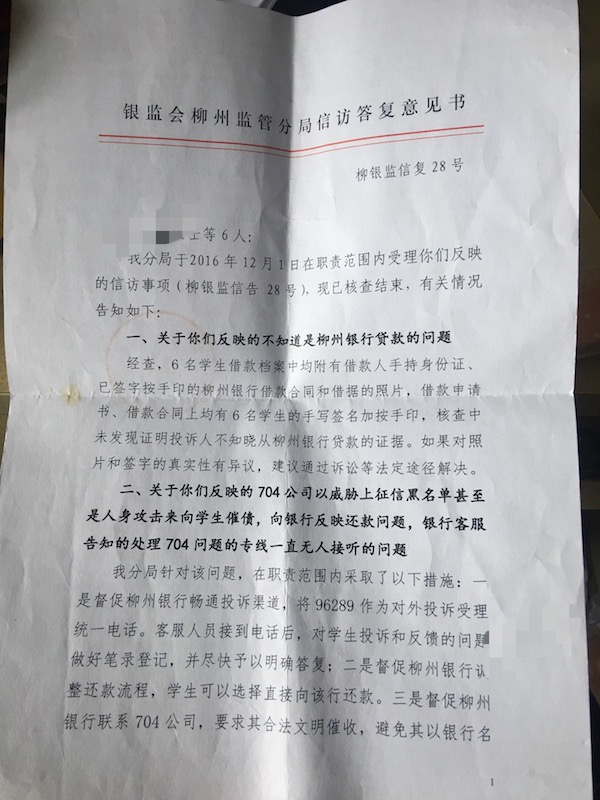 银监会柳州监管分局信访答复意见书
柳银监信复28号
士等6人：
我分局于2016年12月1日在职责范围内受理你们反映
的信访事项（柳银监信告28号），现已核查结束，有关情况
告知如下：
一、关于你们反映的不知道是柳州银行贷款的问题
经查，6名学生借款档案中均附有借款人手持身份证、
已签字按手印的柳州银行借款合同和借据的照片，借款申请
书、借款合同上均有6名学生的手写签名加按手印，核查中
未发现证明投诉人不知晓从柳州银行贷款的证据。如果对照
片和签字的真实性有异议，建议通过诉讼等法定途径解决。
二、关于你们反映的704公司以威胁上征信黑名单甚至
是人身攻击来向学生催债，向银行反映还款问题，银行客服
告知的处理704问题的专线一直无人接听的问题
我分局针对该问题，在职责范围内采取了以下措施：一
是督促柳州银行畅通投诉渠道，将96289作为对外投诉受理
统一电话。客服人员接到电话后，对学生投诉和反馈的问题
做好笔录登记，并尽快予以明确答复；二是督促柳州银行调
整还款流程，学生可以选择直接向该行还款。三是督促柳州
银行联系704公司，要求其合法文明催收，避免其以银行名
1